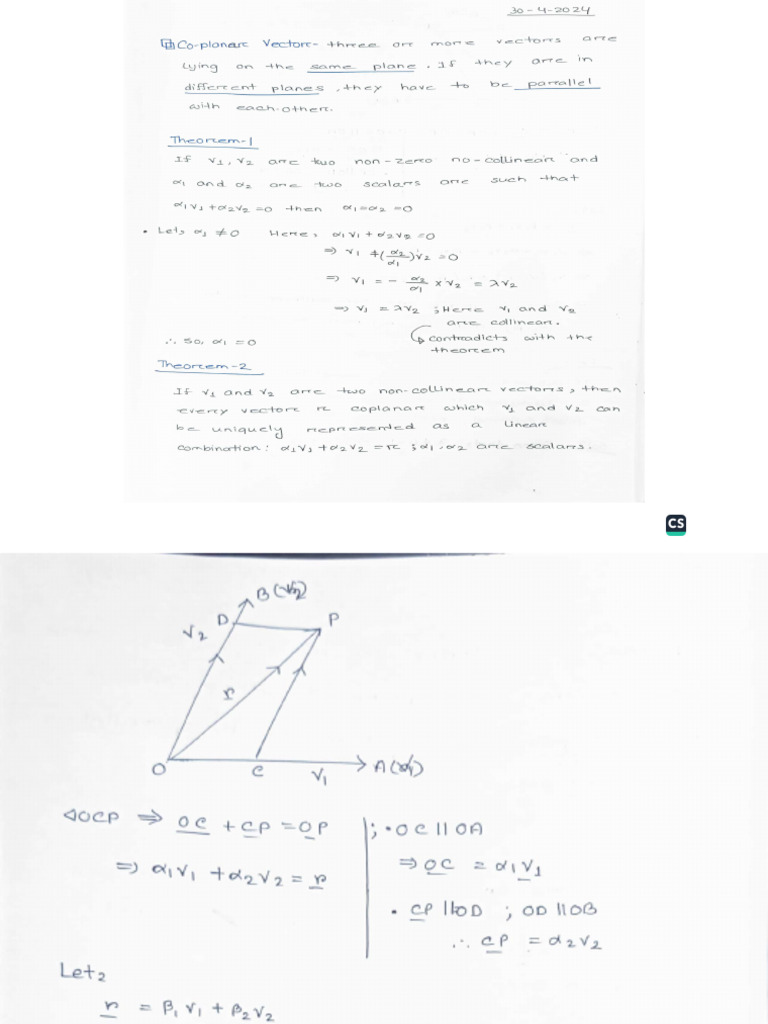 30-4-2024
Co-planar Vector- three or more vectors are
lying on the same plane. If they are in
different planes, they have to be parallel
with each other.
Theorem-1
If v₁, v₂ are two non-zero no-collinear and
α₁ and α₂ are two scalars are such that
α₁v₁+α₂v₂=0 then α₁=α₂=0
• Let, α₁≠0 Here, α₁v₁+α₂v₂=0
⇒ v₁ +(α₂/α₁)v₂=0
⇒ v₁ = - α₂/α₁ × v₂ = λv₂
⇒ v₁ = λv₂ ; Here v₁ and v₂
are collinear.
∴ So, α₁ = 0
contradicts with the
theorem
Theorem-2
If v₁ and v₂ are two non-collinear vectors, then
every vector r coplanar which v₁ and v₂ can
be uniquely represented as a linear
combination: α₁v₁+α₂v₂=r ; α₁, α₂ are scalars.
CS
B(v₂)
D
P
v₂
r
O
C
v₁
A(v₁)
◁OCP ⇒ OC + CP = OP
⇒ α₁v₁ + α₂v₂ = r
; • OC || OA
⇒ OC = α₁v₁
• CP || OD ; OD || OB
∴ CP = α₂v₂
Let₂
r = β₁v₁ + β₂v₂